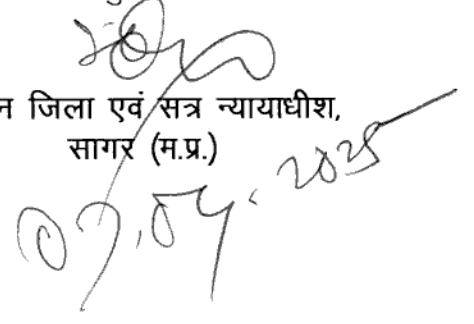 न जिला एवं सत्र न्यायाधीश,
सागर (म.प्र.)
2025